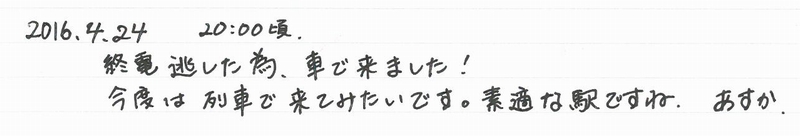 2016.4.24 20:00頃.
終電逃した為、車で来ました!
今度は列車で来てみたいです。素適な駅ですね. あすか.